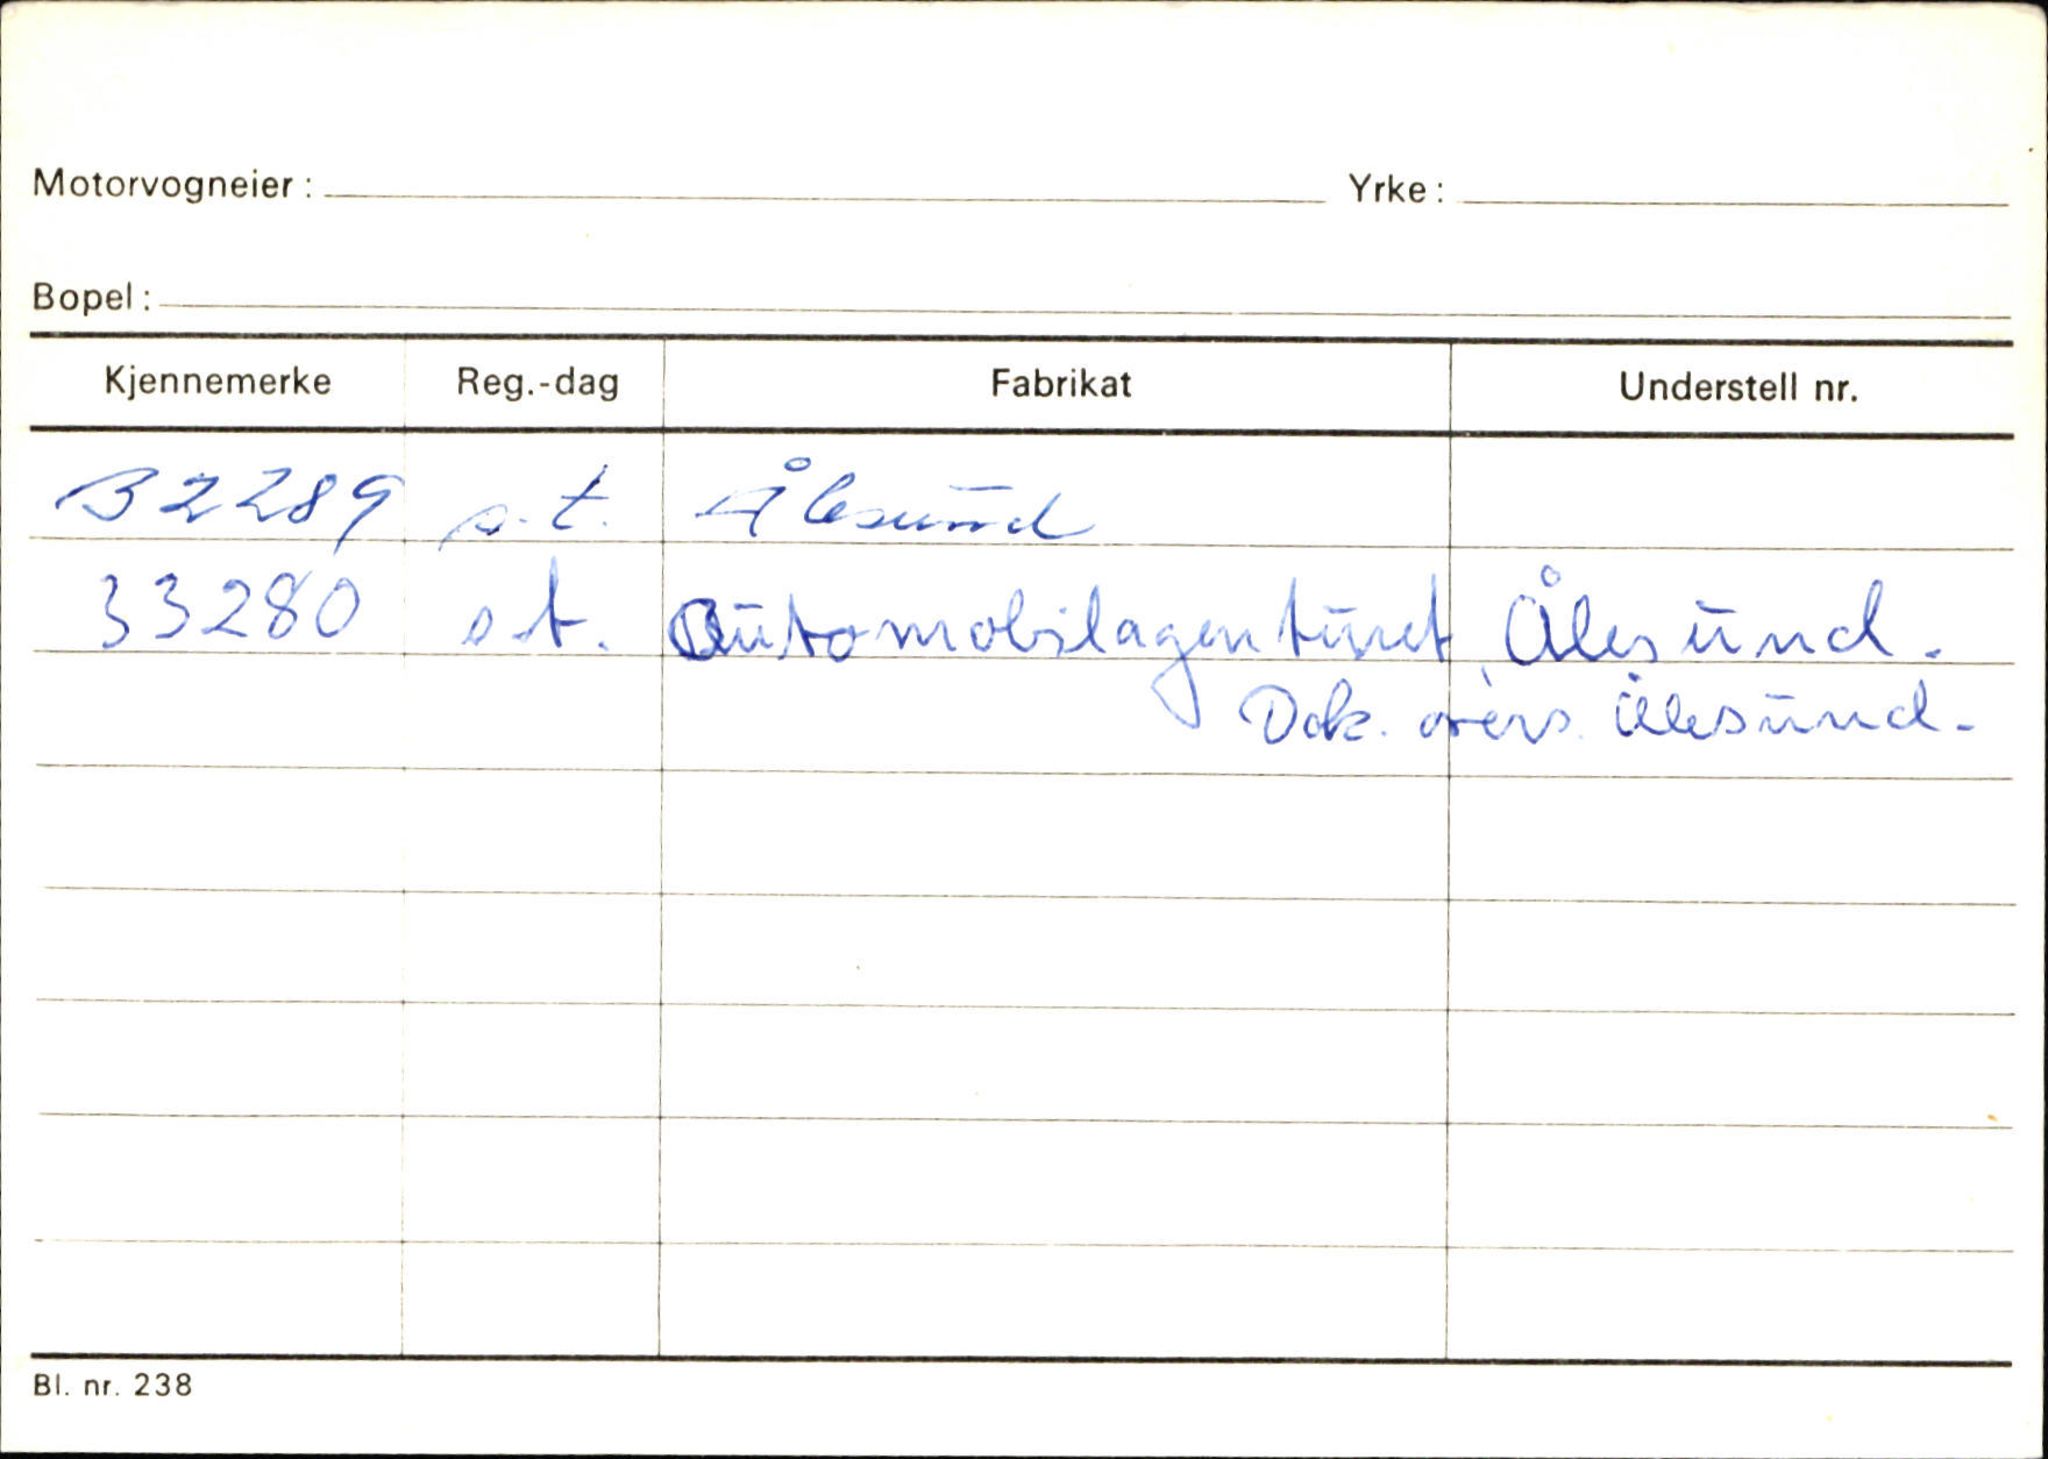 Motorvogneier: Yrke:
Bopel:
Kjennemerke Reg.-dag Fabrikat Understell nr.
B2289 s.t. Ålesund
33280 s.t. Automobilagenturet Ålesund.
Dok. overs. Ålesund.
Bl. nr. 238